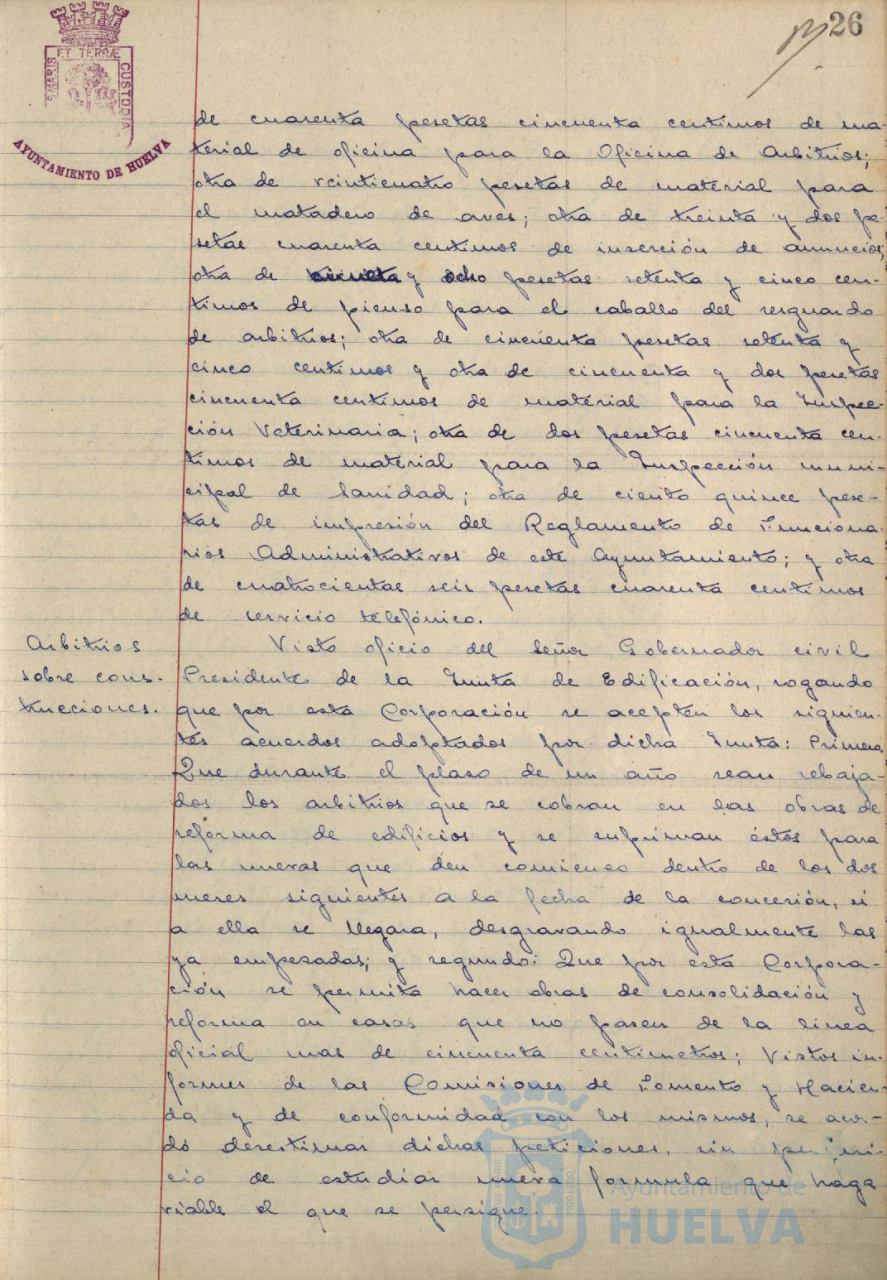 26
ET TERRÆ
CUSTODIA
AYUNTAMIENTO DE HUELVA
de cuarenta pesetas cincuenta centimos de ma-
terial de oficina para la Oficina de Arbitrios;
otra de veinticuatro pesetas de material para
el matadero de aves; otra de treinta y dos pe-
setas cuarenta centimos de inserción de anuncios;
otra de y ocho pesetas setenta y cinco cen-
timos de pienso para el caballo del resguardo
de arbitrios; otra de cincuenta pesetas setenta y
cinco centimos y otra de cincuenta y dos pesetas
cincuenta centimos de material para la Inspec-
ción Veterinaria; otra de dos pesetas cincuenta cen-
timos de material para la Inspección muni-
cipal de Sanidad; otra de ciento quince pese-
tas de impresión del Reglamento de Funciona-
rios Administrativos de este Ayuntamiento; y otra
de cuatrocientas seis pesetas cuarenta centimos
de servicio telefónico.
Arbitrios
sobre cons-
trucciones.
Visto oficio del Señor Gobernador civil
Presidente de la Junta de Edificación, rogando
que por esta Corporación se acepten los siguien-
tes acuerdos adoptados por dicha Junta: Primero,
Que durante el plaso de un año sean rebaja-
dos los arbitrios que se cobran en las obras de
reforma de edificios y se supriman éstos para
las nuevas que den comienco dentro de los dos
meses siguientes a la fecha de la concesión, si
a ella se llegara, desgravando igualmente las
ya empesadas; y segundo: Que por esta Corpora-
ción se permita hacer obras de consolidación y
reforma en casas que no pasen de la linea
oficial mas de cincuenta centimetros; Vistos in-
formes de las Comisiones de Fomento y Hacien-
da y de conformidad con los mismos, se acor-
dó desestimar dichas peticiones, sin perjui-
cio de estudiar nueva formula que haga
viable el que se persigue.
Ayuntamiento de
HUELVA